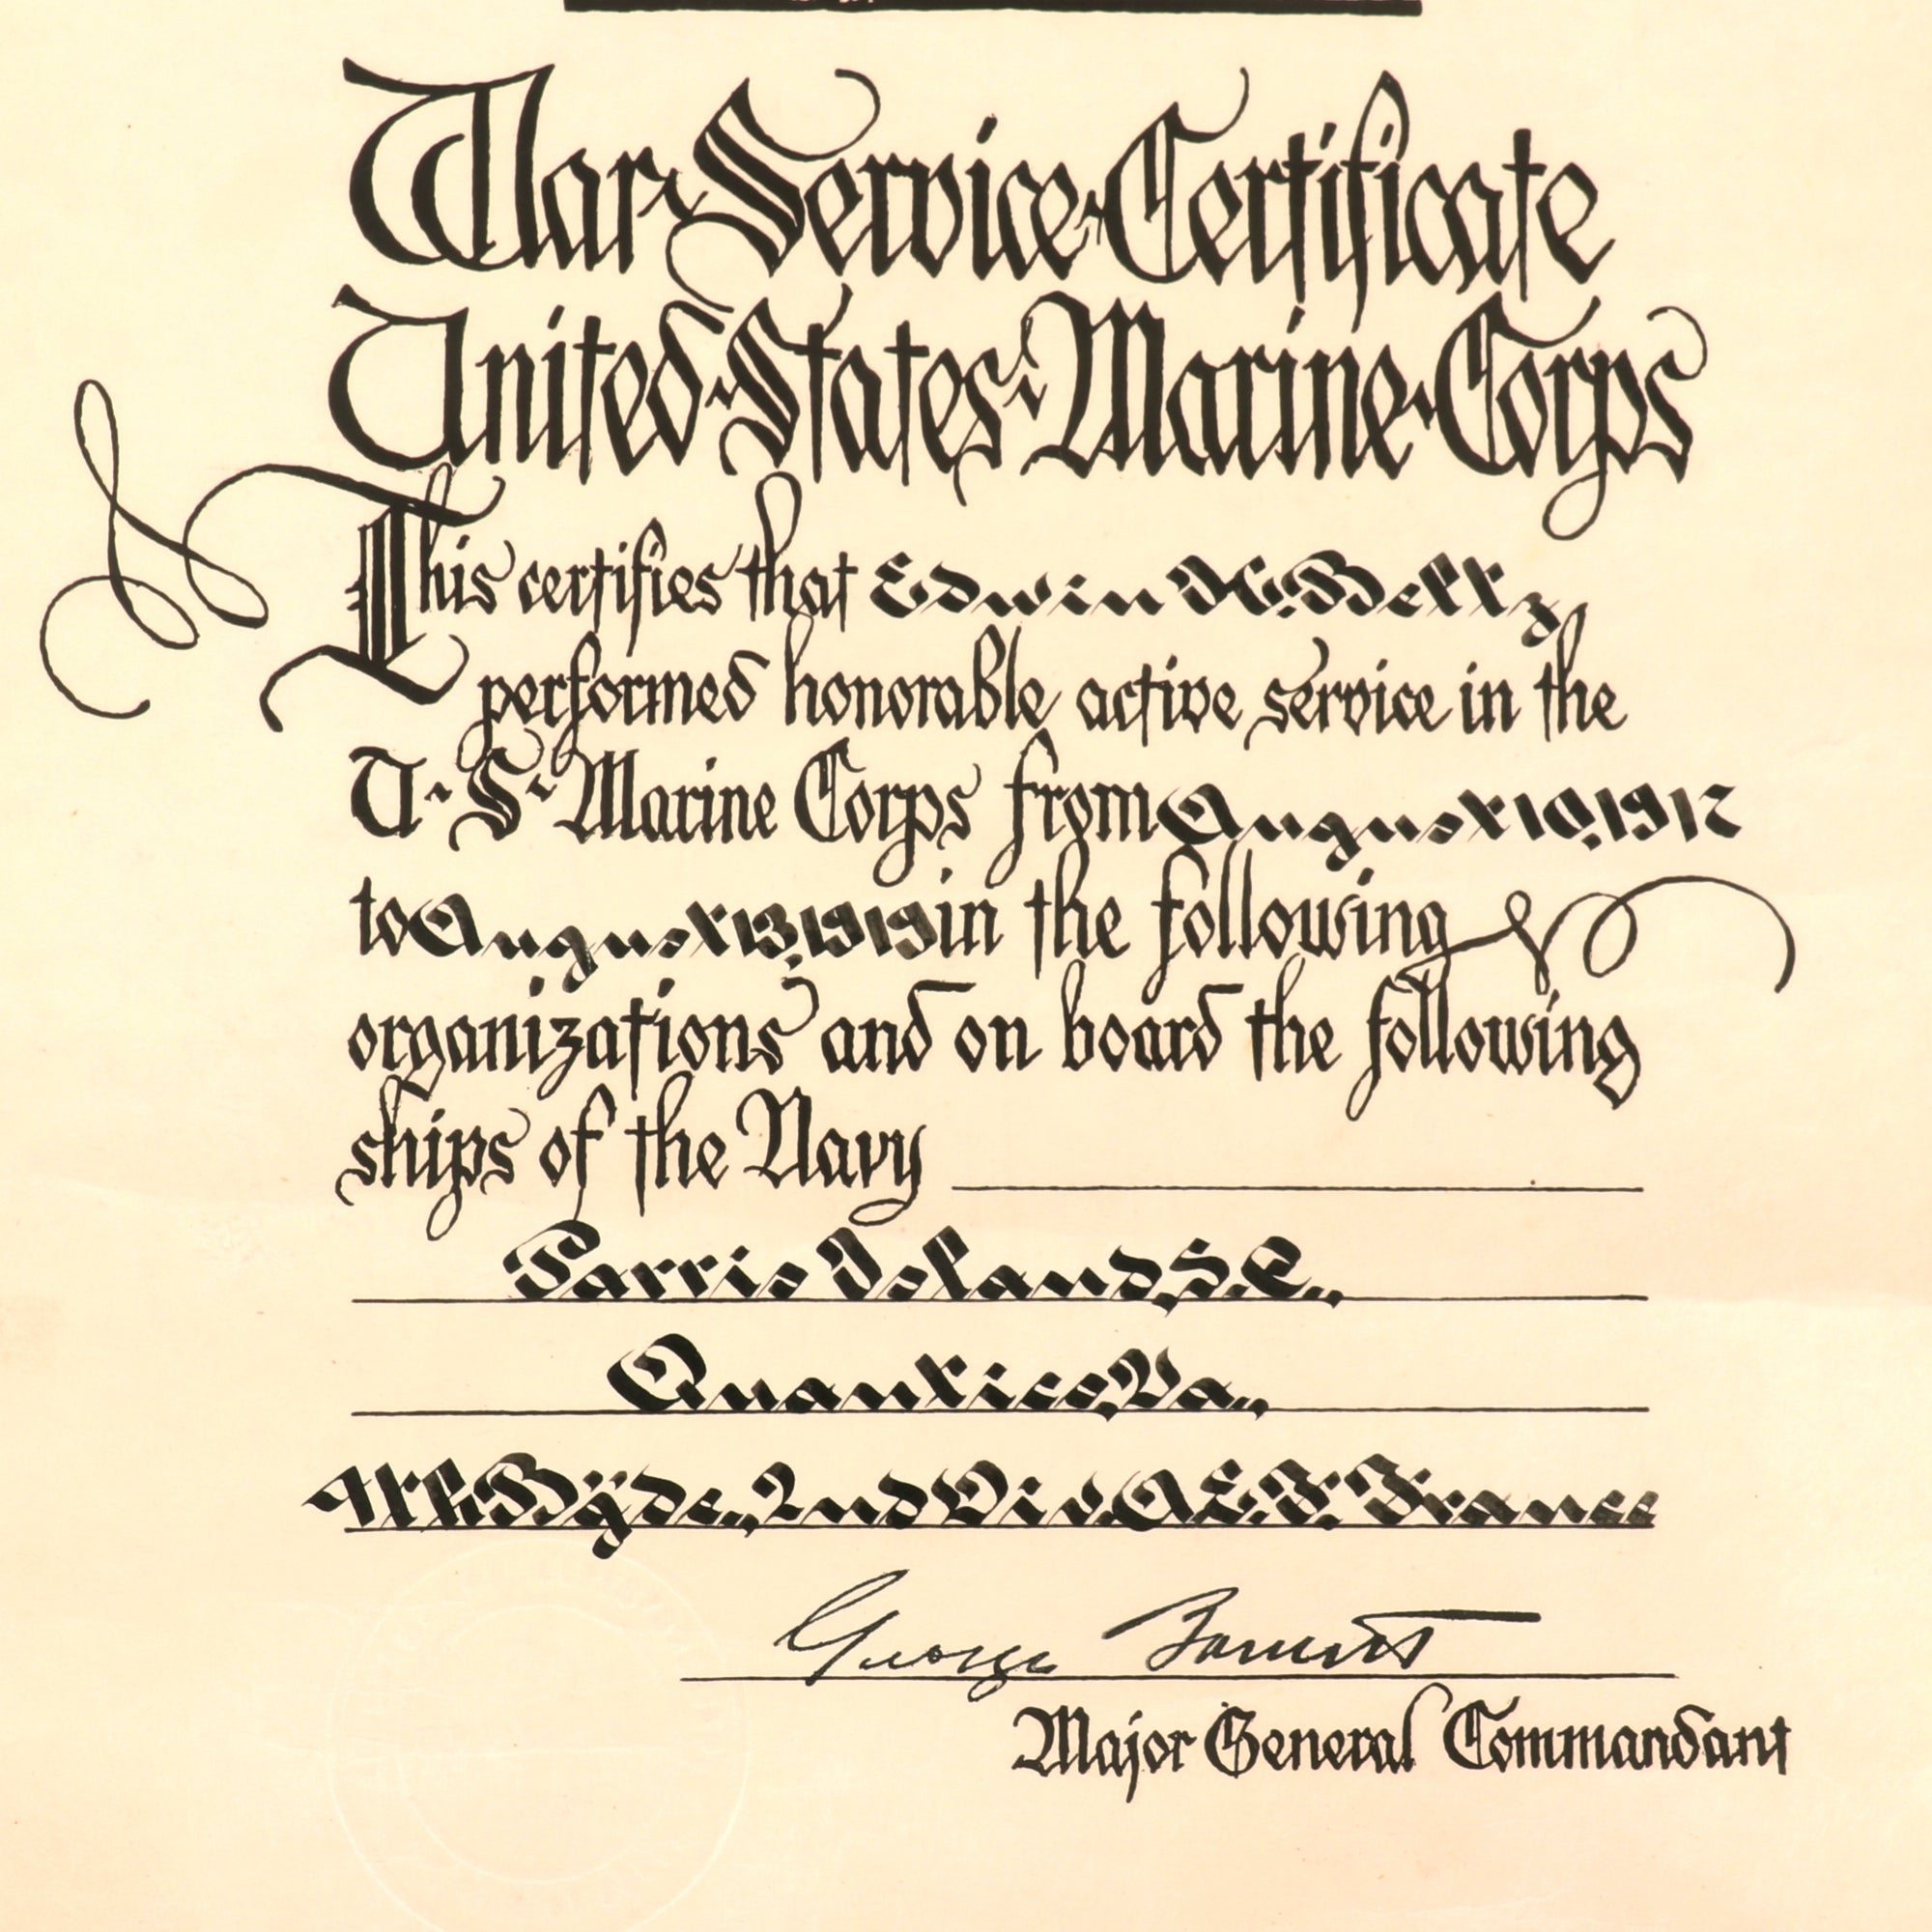 War Service Certificate
United States Marine Corps
This certifies that Edwin H. Beltz
performed honorable active service in the
U. S. Marine Corps from August 10, 1917
to August 13, 1919 in the following
organizations and on board the following
ships of the Navy
Parris Island, S.C.,
Quantico, Va.,
4th Bgde., 2nd Div. A.E.F. France
George Barnett
Major General Commandant